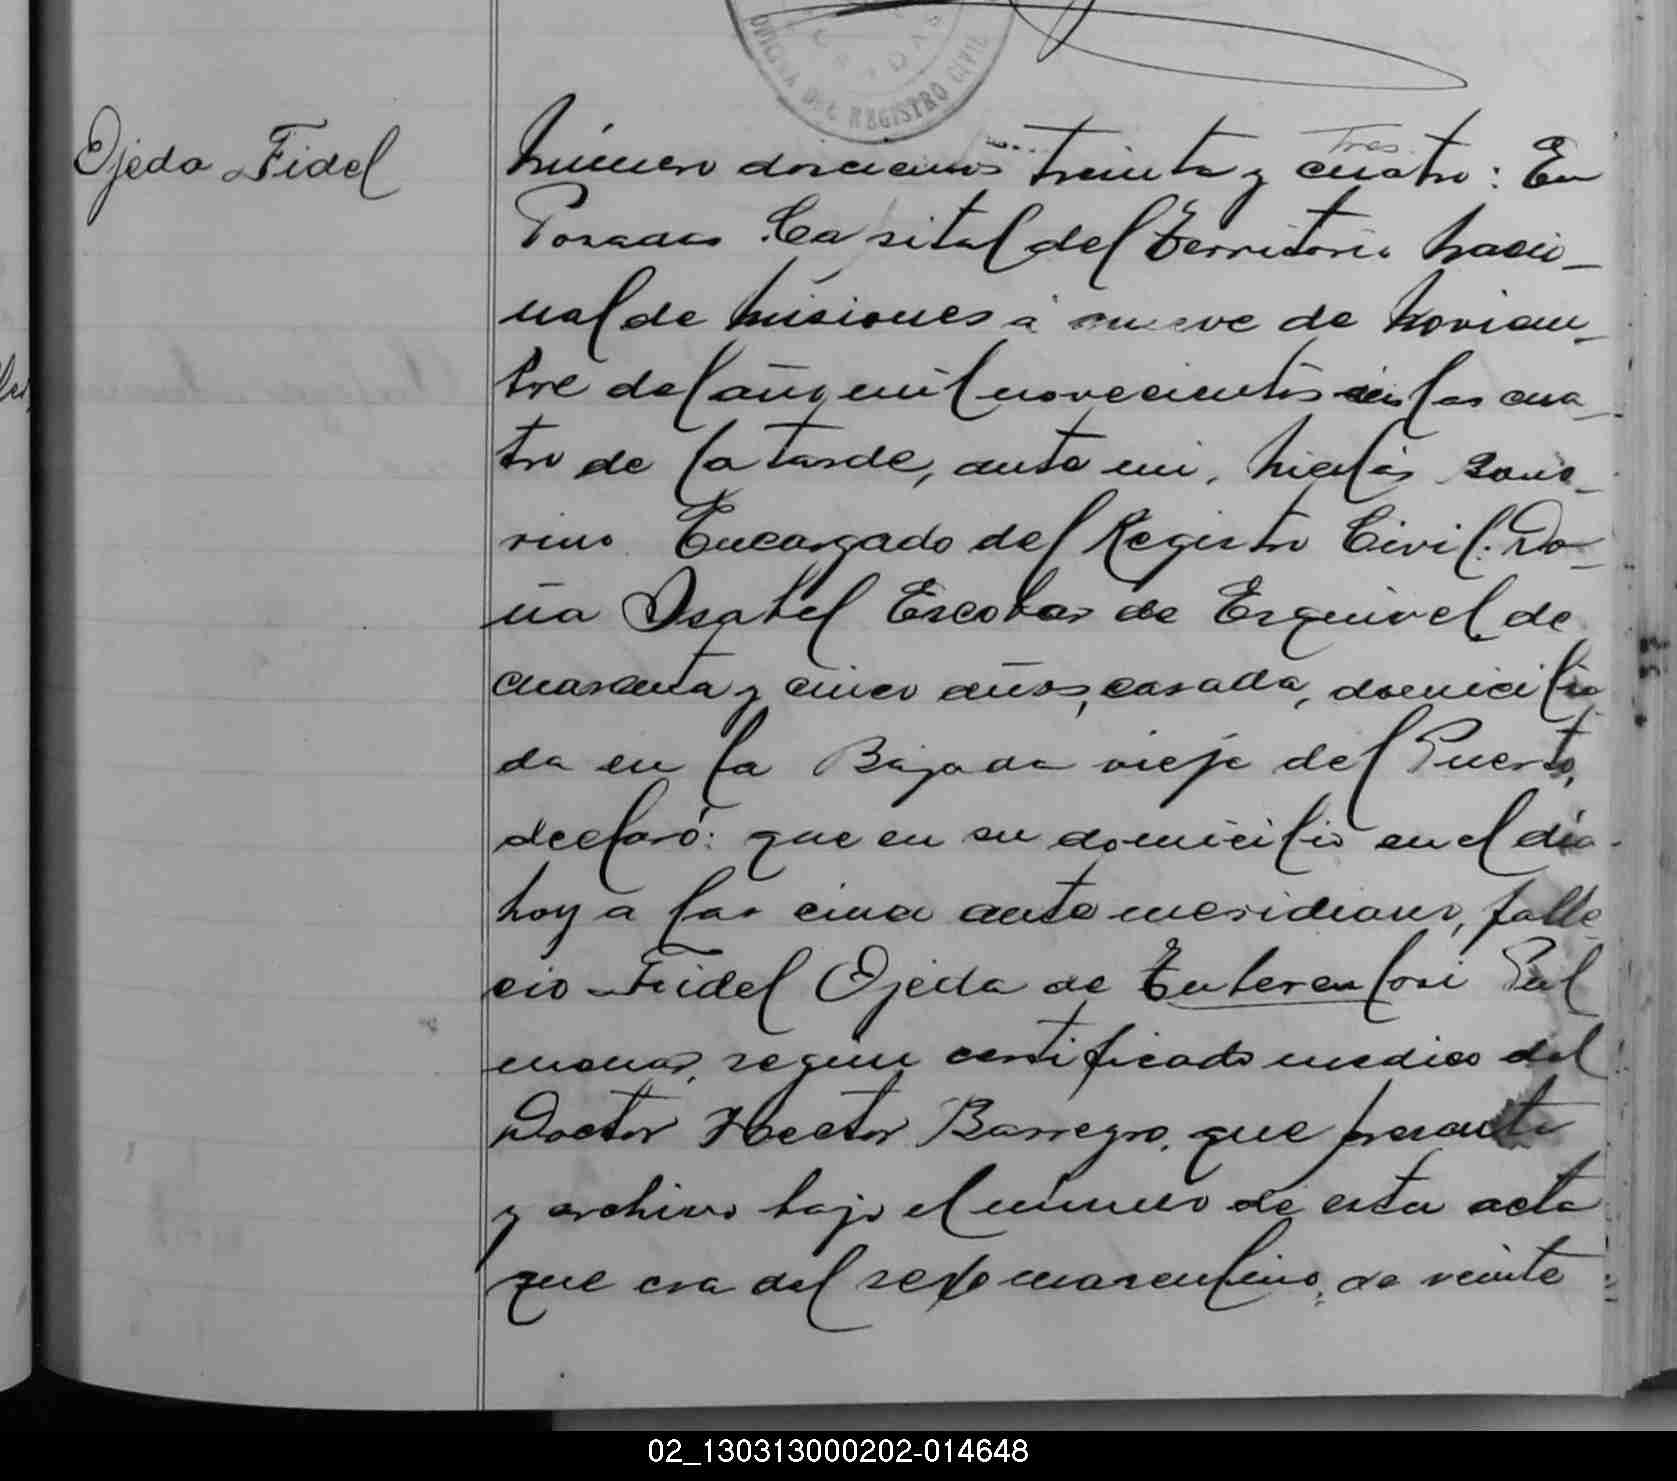 OFICINA DEL REGISTRO CIVIL
Ojeda Fidel
Tres
Número doscientos treinta y cuatro: En
Posadas Capital del Territorio Nacio-
nal de Misiones á nueve de Noviem-
bre del año mil novecientos seis las cua-
tro de la tarde, ante mi, Nicolás
Encargado del Registro Civil: Do-
ña Isabel Escobar de Esquivel, de
cuarenta y cinco años, casada, domicilia
da en la Bajada vieja del Puerto,
declaró: que en su domicilio en el dia
hoy a las cinco ante meridiano, falle
cio Fidel Ojeda de Tuberculosi Pul
monar, segun certificado medico del
Doctor Hector Barreyro, que presenta
y archivo bajo el número de esta acta
que era del sexo masculino, de veinte
02_130313000202-014648